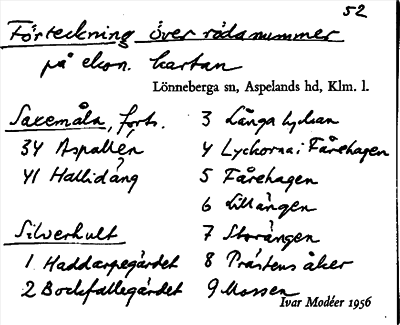 52
Förteckning över röda nummer
på ekon. kartan
Lönneberga sn, Aspelands hd, Klm. l.
Saxemåla, forts.
34 Aspallén
41 Hallidång
Silverhult
1 Haddarpegärdet
2 Bockfallegärdet
3 Långa lyckan
4 Lyckorna i Fårehagen
5 Fårehagen
6 Lillängen
7 Storängen
8 Prästens åker
9 Mossen
Ivar Modéer 1956